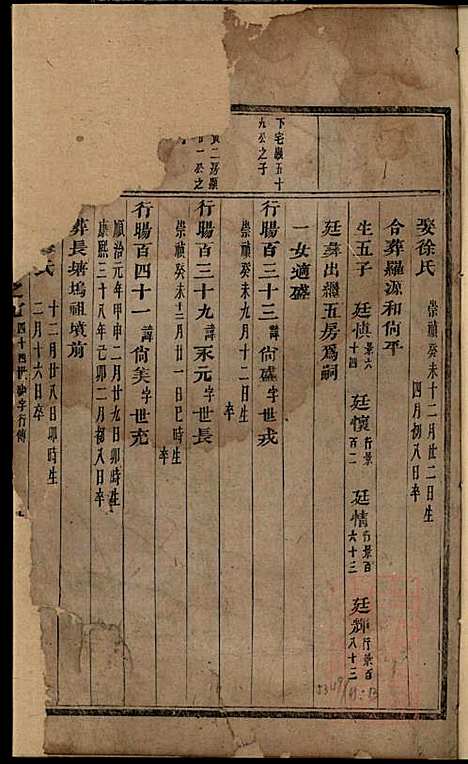 娶徐氏 崇禎癸未十二月廿二日生
四月初八日卒
合葬羅源和尙平
生五子 廷慎 行景六十四 廷懷 行景百二 廷情 行景百六十三 廷 行景百八十三
廷 出繼五房爲嗣
一女適盛
下宅 五十
九公之子
行腸百三十三 諱尙盛字世戎
崇禎癸未九月十二日生
卒
行腸百三十九 諱永元字世長
崇禎癸未十二月廿一日巳時生
卒
二房
一公之
行腸百四十一 諱尙美字世充
順治元年甲申二月廿九日卯時生
康熙三十八年己卯二月初八日卒
葬長塘塢祖墳前
氏 十二月廿八日卯時生
二月十六日卒
四十四 字行傳